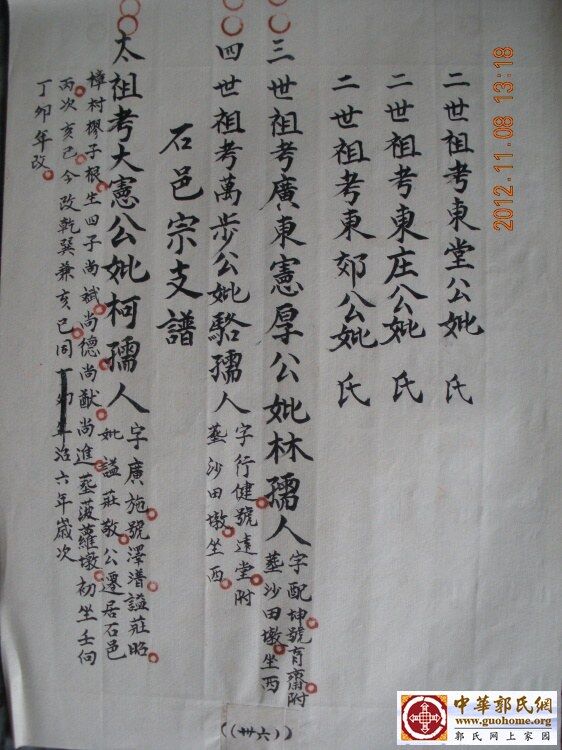 二世祖考東堂公妣 氏
二世祖考東庄公妣 氏
二世祖考東郊公妣 氏
三世祖考廣東憲厚公妣林孺人
字配坤號育齋附
葬沙田墩坐西
四世祖考萬步公妣駱孺人
字行健號遠堂附
葬沙田墩坐西
石邑宗支譜
太祖考大憲公妣柯孺人
字廣施號澤潽謚莊昭
妣謚莊敬公遷居石邑
樟村樛子根生四子尚斌尚德尚猷尚進葬菠蘿墩初坐壬向
丙次亥巳今改乾巽兼亥巳同丁卯年治六年歲次
丁卯年改
((卅六))
2012.11.08 13:18
中華郭氏網
www.guohome.org
郭氏网上家园